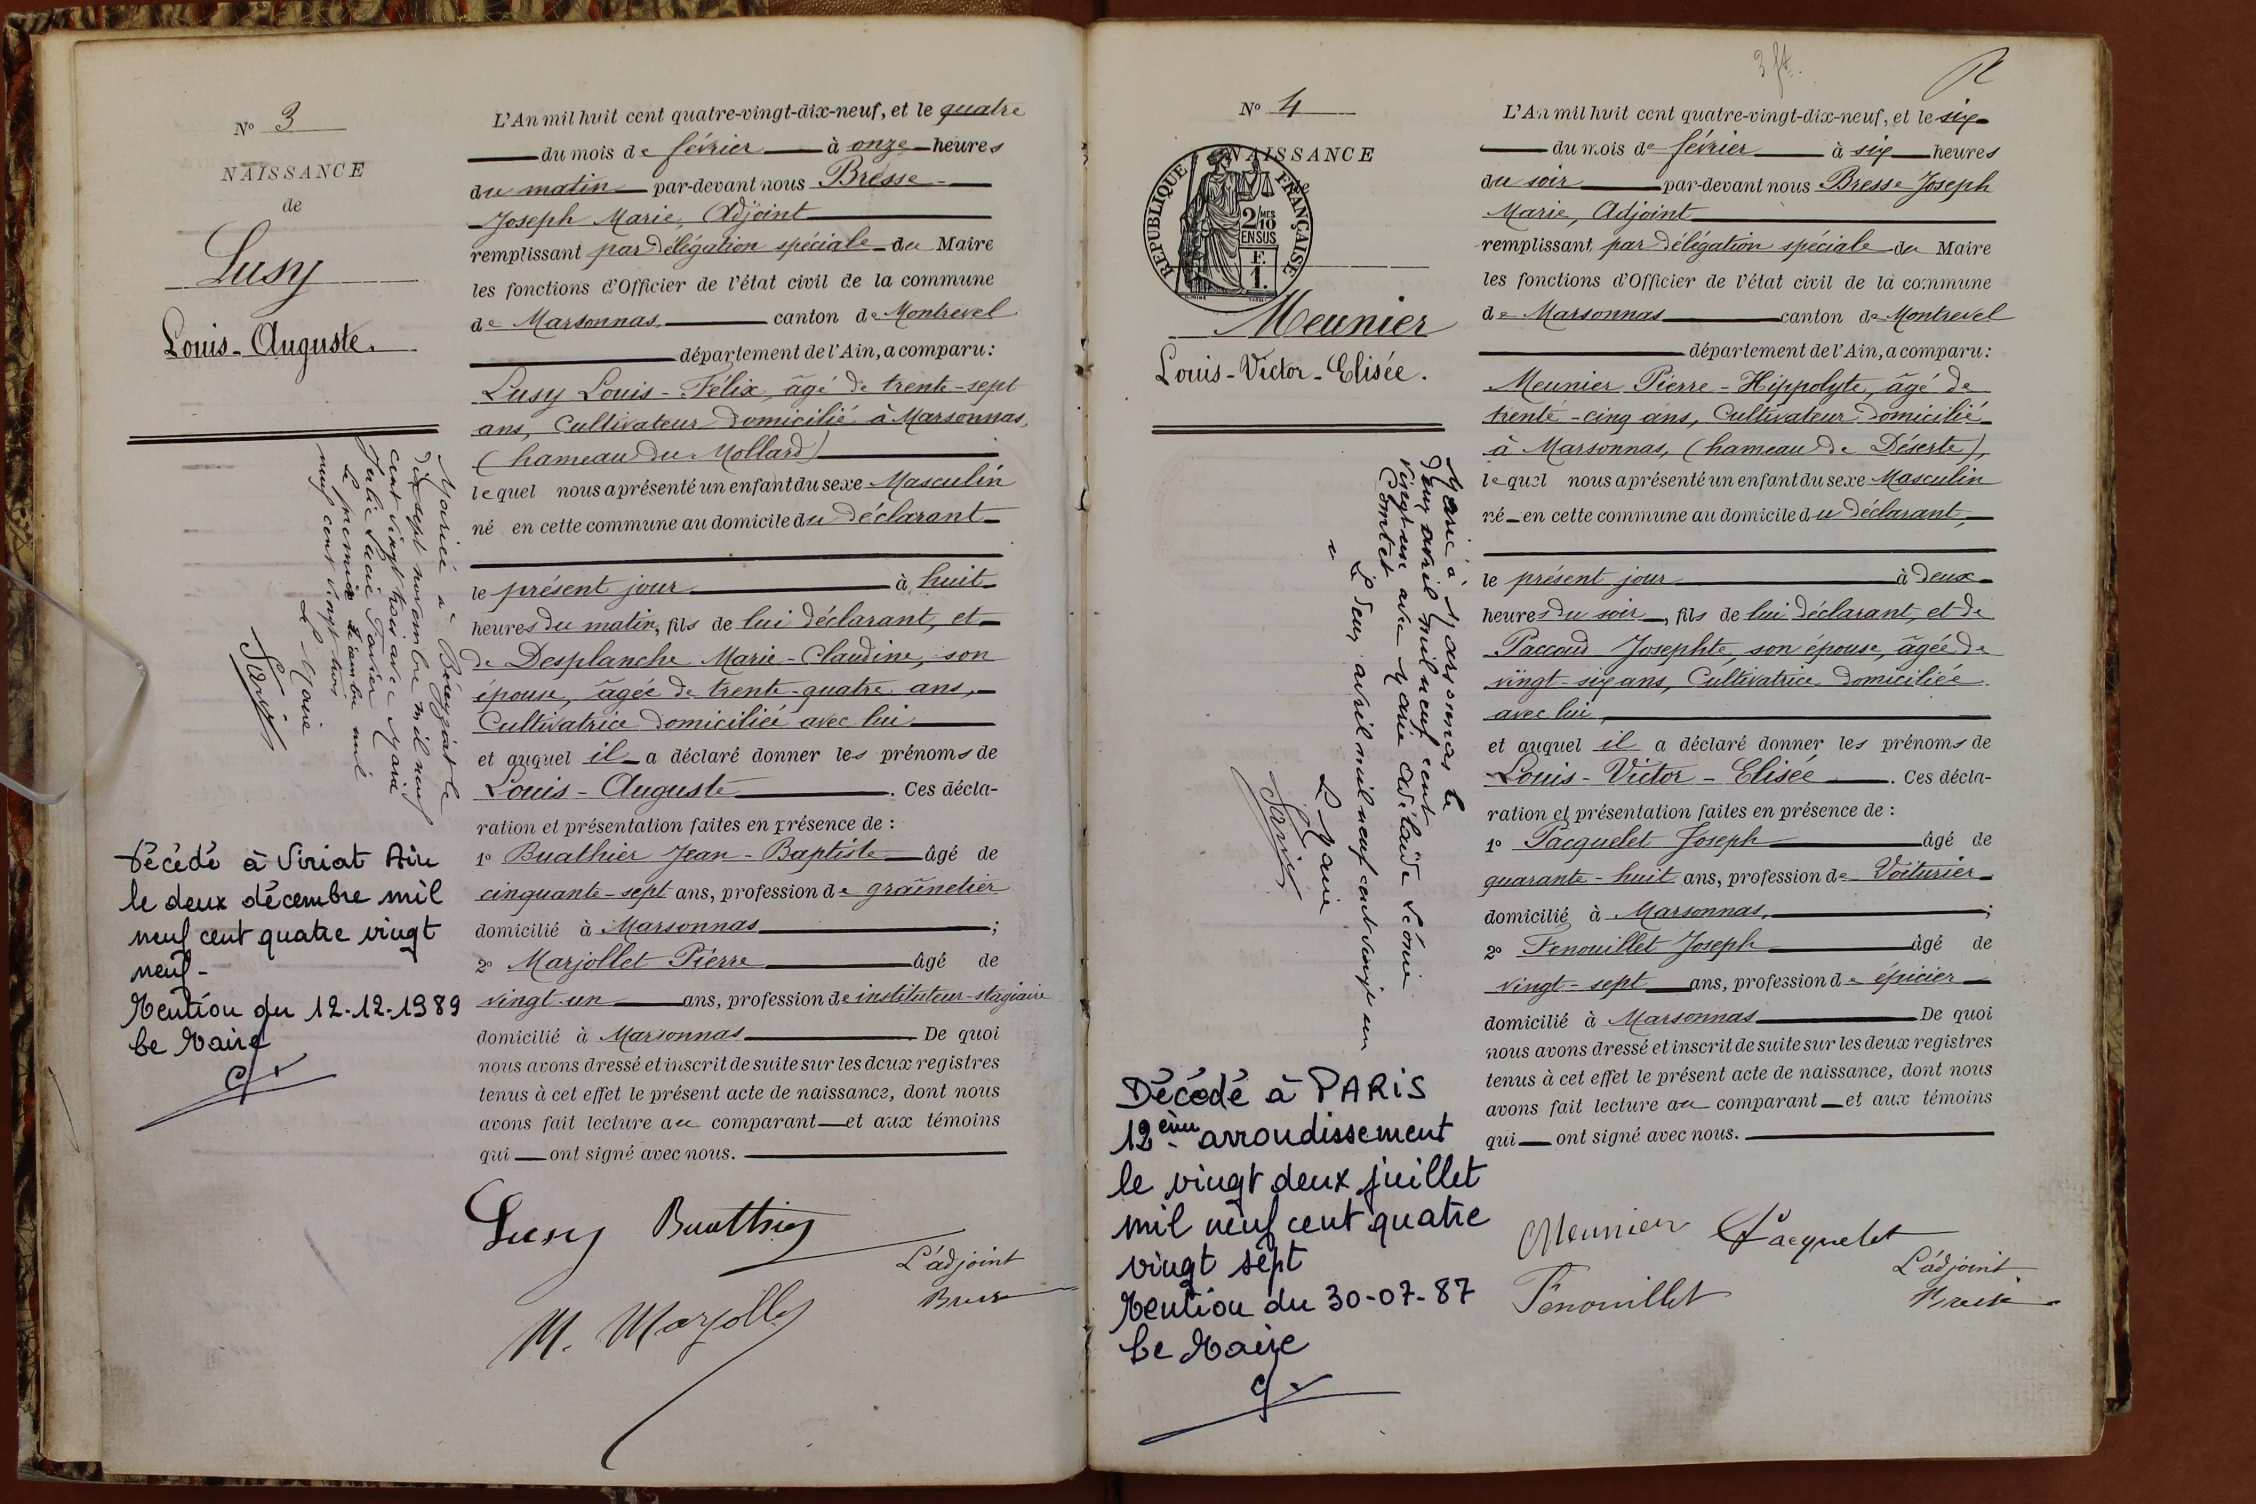 N° 3
NAISSANCE
de
Lusy
Louis-Auguste.
Marié à Béligneux le
dix sept novembre mil neuf
cent vingt trois avec Marie
Julie Lucie
Le premier décembre mil
neuf cent vingt trois
Le Maire
Décédé à Viriat Ain
le deux décembre mil
neuf cent quatre vingt
neuf-
Mention du 12-12-1989
Le Maire
L'An mil huit cent quatre-vingt-dix-neuf, et le quatre
du mois de février à onze heures
du matin par-devant nous Bresse
Joseph Marie, Adjoint
remplissant par délégation spéciale du Maire
les fonctions d'Officier de l'état civil de la commune
de Marsonnas, canton de Montrevel
département de l'Ain, a comparu :
Lusy Louis-Félix, âgé de trente-sept
ans, Cultivateur domicilié à Marsonnas,
(hameau du Mollard)
lequel nous a présenté un enfant du sexe Masculin
né en cette commune au domicile du déclarant
le présent jour à huit
heures du matin, fils de lui déclarant, et
de Desplanche Marie-Claudine, son
épouse, âgée de trente-quatre ans,
Cultivatrice domiciliée avec lui
et auquel il a déclaré donner les prénoms de
Louis-Auguste. Ces décla-
ration et présentation faites en présence de :
1° Buathier Jean-Baptiste âgé de
cinquante-sept ans, profession de grainetier
domicilié à Marsonnas ;
2° Marjollet Pierre âgé de
vingt-un ans, profession de instituteur-stagiaire
domicilié à Marsonnas De quoi
nous avons dressé et inscrit de suite sur les deux registres
tenus à cet effet le présent acte de naissance, dont nous
avons fait lecture au comparant et aux témoins
qui ont signé avec nous.
Lusy Buathier
L'adjoint
Bresse
M. Marjollet
3 ft.
N° 4
NAISSANCE
de
REPUBLIQUE FRANÇAISE
2/10 MES
EN SUS
F.
1.
Meunier
Louis-Victor-Elisée.
Marié à Marsonnas le
deux avril mil neuf cent
vingt-un avec Marie Adélaïde Léonie
Comtet
Le deux avril mil neuf cent vingt un
Le Maire
Décédé à PARIS
12ème arrondissement
le vingt deux juillet
mil neuf cent quatre
vingt sept
Mention du 30-07-87
Le Maire
L'An mil huit cent quatre-vingt-dix-neuf, et le six
du mois de février à six heures
du soir par-devant nous Bresse Joseph
Marie, Adjoint
remplissant par délégation spéciale du Maire
les fonctions d'Officier de l'état civil de la commune
de Marsonnas canton de Montrevel
département de l'Ain, a comparu :
Meunier Pierre-Hippolyte, âgé de
trente-cinq ans, Cultivateur domicilié
à Marsonnas, (hameau de Déserte),
lequel nous a présenté un enfant du sexe Masculin
né en cette commune au domicile du déclarant,
le présent jour à deux
heures du soir, fils de lui déclarant, et de
Paccoud Josephte, son épouse, âgée de
vingt-six ans, Cultivatrice domiciliée
avec lui,
et auquel il a déclaré donner les prénoms de
Louis-Victor-Elisée. Ces décla-
ration et présentation faites en présence de :
1° Pacquelet Joseph âgé de
quarante-huit ans, profession de Voiturier
domicilié à Marsonnas, ;
2° Fenouillet Joseph âgé de
vingt-sept ans, profession de épicier
domicilié à Marsonnas De quoi
nous avons dressé et inscrit de suite sur les deux registres
tenus à cet effet le présent acte de naissance, dont nous
avons fait lecture au comparant et aux témoins
qui ont signé avec nous.
Meunier Pacquelet
L'adjoint
Fenouillet Bresse